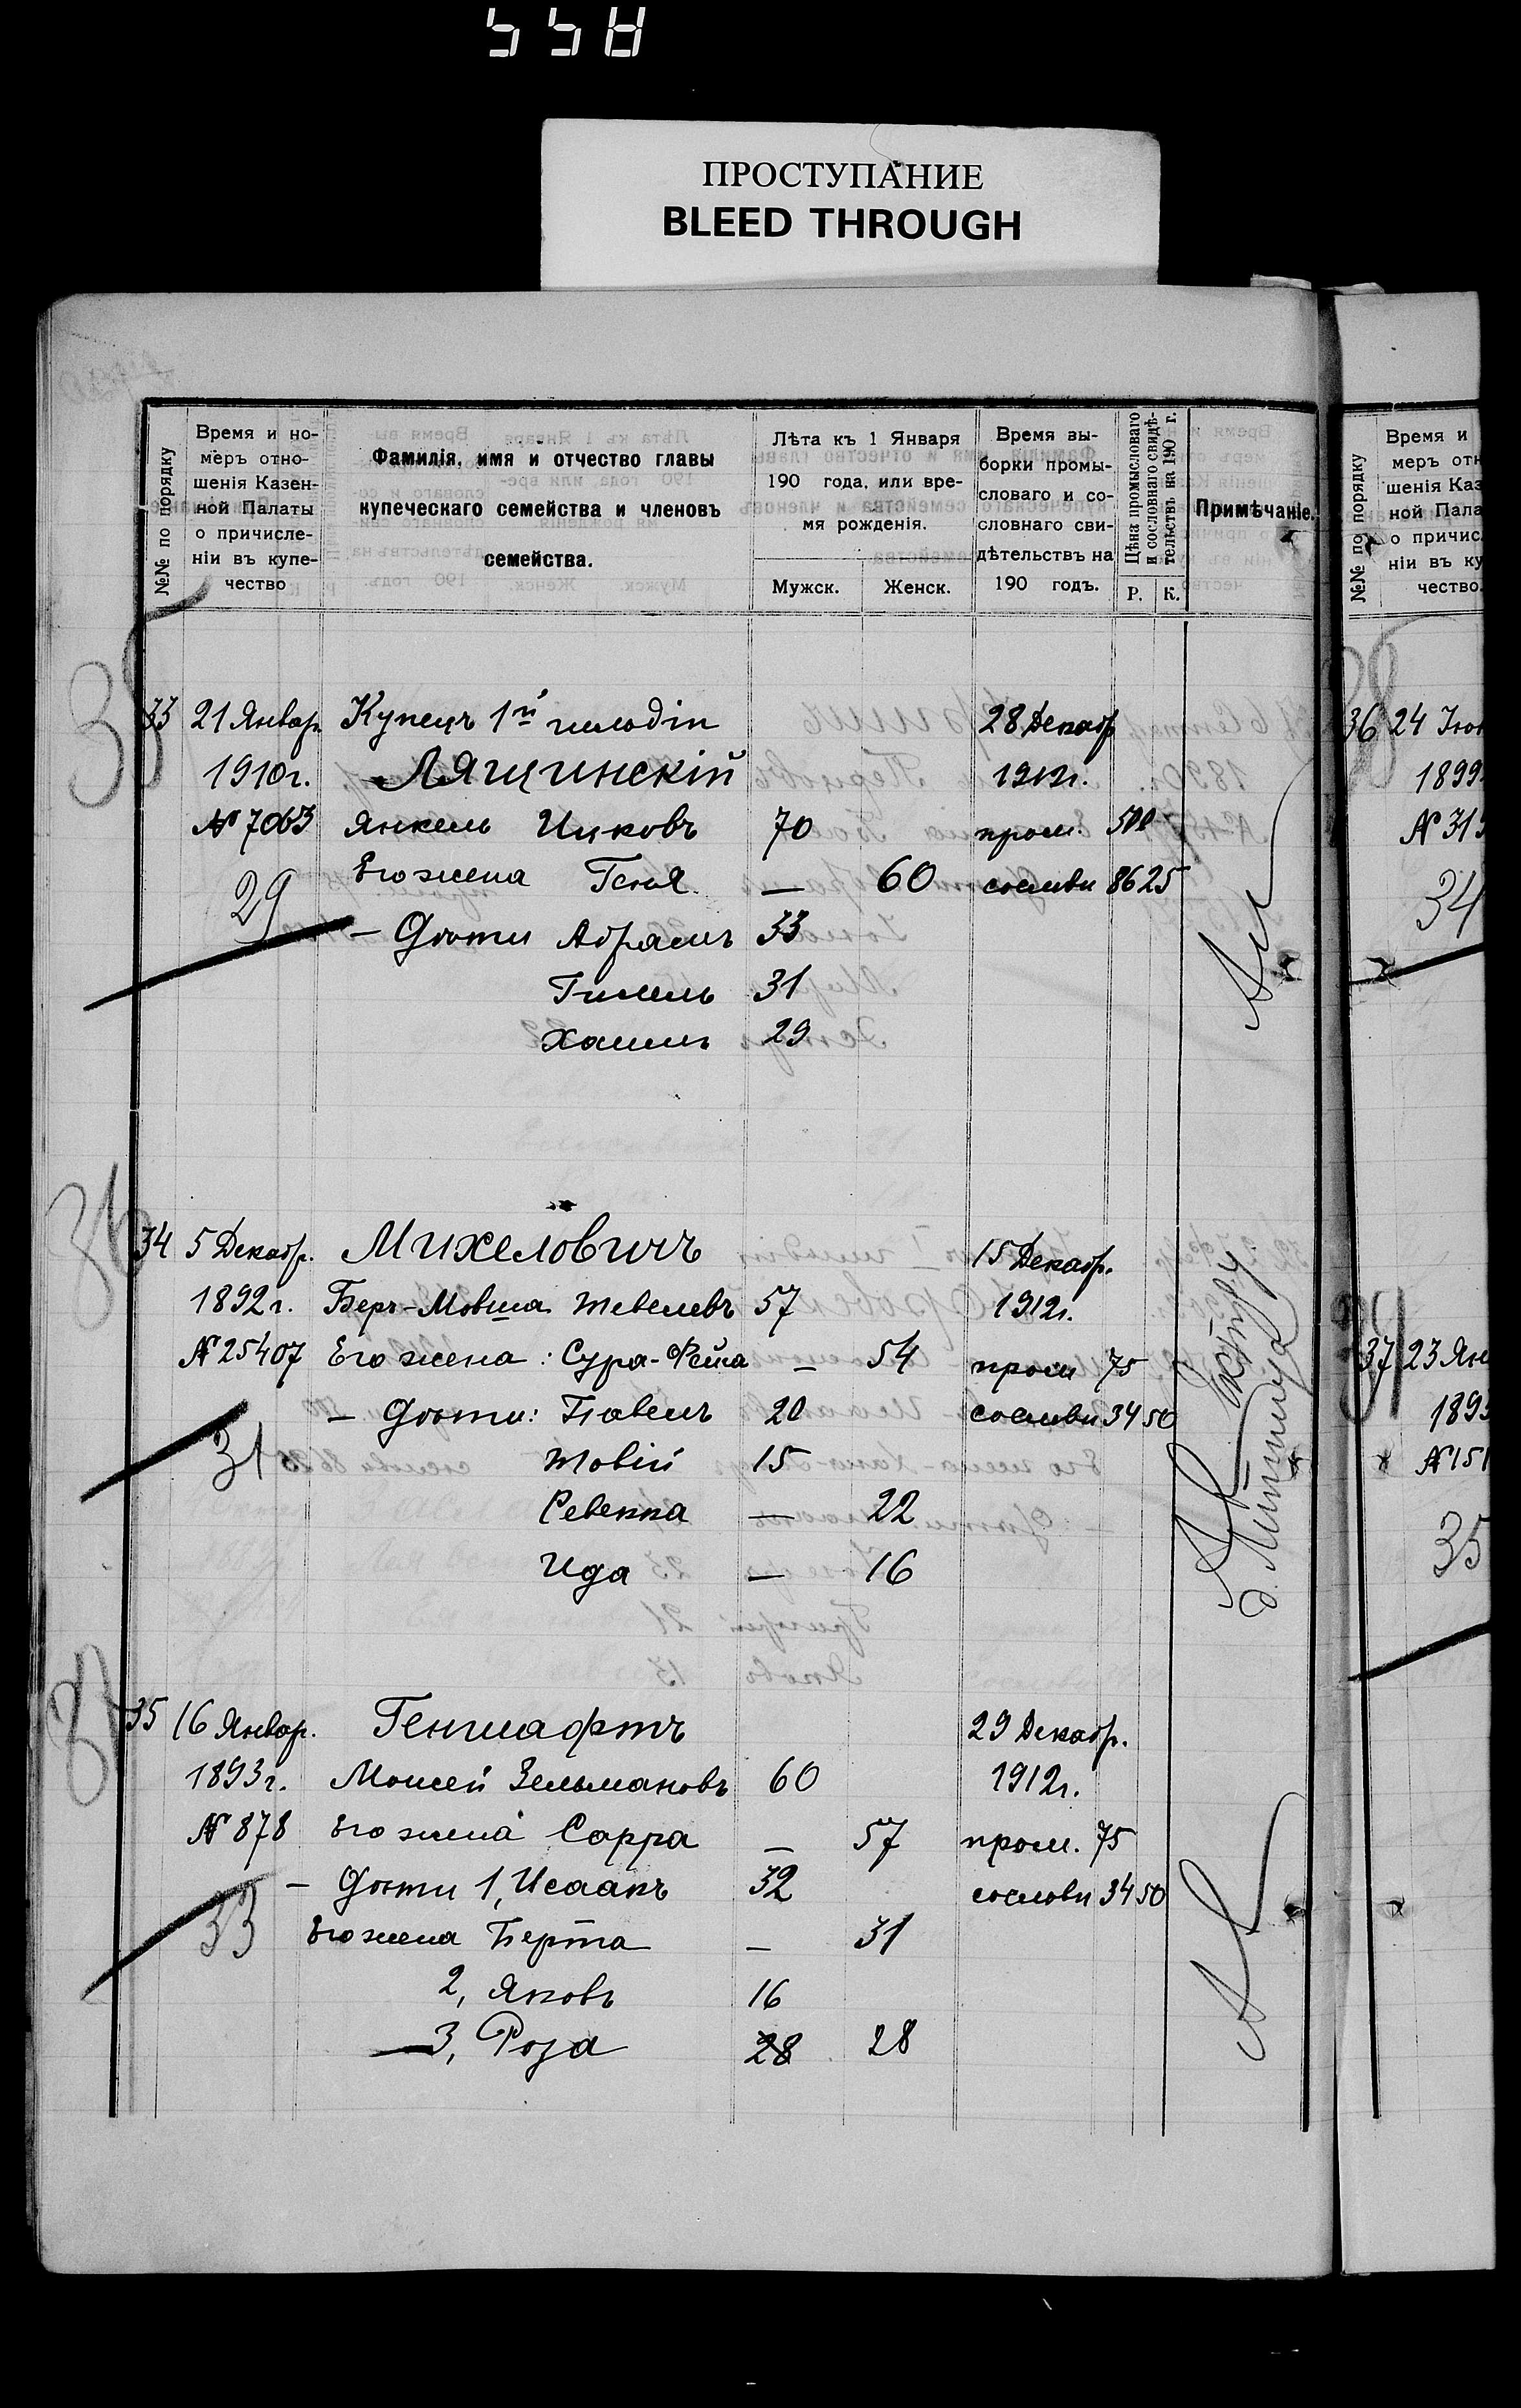 558
ПРОСТУПАНИЕ
BLEED THROUGH
№№ по порядку
Время и но-
меръ отно-
шенія Казен-
ной Палаты
о причисле-
ніи въ купе-
чество
Фамилія, имя и отчество главы
купеческаго семейства и членовъ
семейства.
Лѣта къ 1 Января
190 года, или вре-
мя рожденія.
Мужск. Женск.
Время вы-
борки промы-
словаго и со-
словнаго сви-
дѣтельствъ на
190 годъ.
Цѣна промысловаго
и сословнаго свидѣ-
тельствъ на 190 г.
Р. К.
Примѣчаніе.
35
33 21 Январ. Купецъ 1й гильдіи 28 Декабр
1910г. Лящинскій 1912г.
№ 7063 Янкель Ицковъ 70 пром. 500
29 Его жена Геня — 60 сословн 86 25
— Дѣти Абрамъ 33
Гилель 31
Хаимъ 29
36
34 5 Декабр. Михеловичъ 15 Декабр.
1892г. Беръ-Мовша Тевелевъ 57 1912г.
№ 25407 Его жена: Сура-Фейга — 54 пром 75
31 — Дѣти: Павелъ 20 сословн 34 50
Товій 15
Ревекка — 22
Ида — 16
37
35 16 Январ. Геншафтъ 29 Декабр.
1893г. Моисей Зельмановъ 60 1912г.
№ 878 Его жена Сарра — 57 пром. 75
33 — Дѣти 1, Исаакъ 32 сословн 34 50
Его жена Берта — 31
2, Яковъ 16
— 3, Роза 28 28
№№ по порядку
Время и
меръ отн
шенія Каз
ной Пала
о причис
ніи въ ку
чество.
38
36 24 Іюн
1899
№ 313
34
39
37 23 Янв
1893
№ 151
35